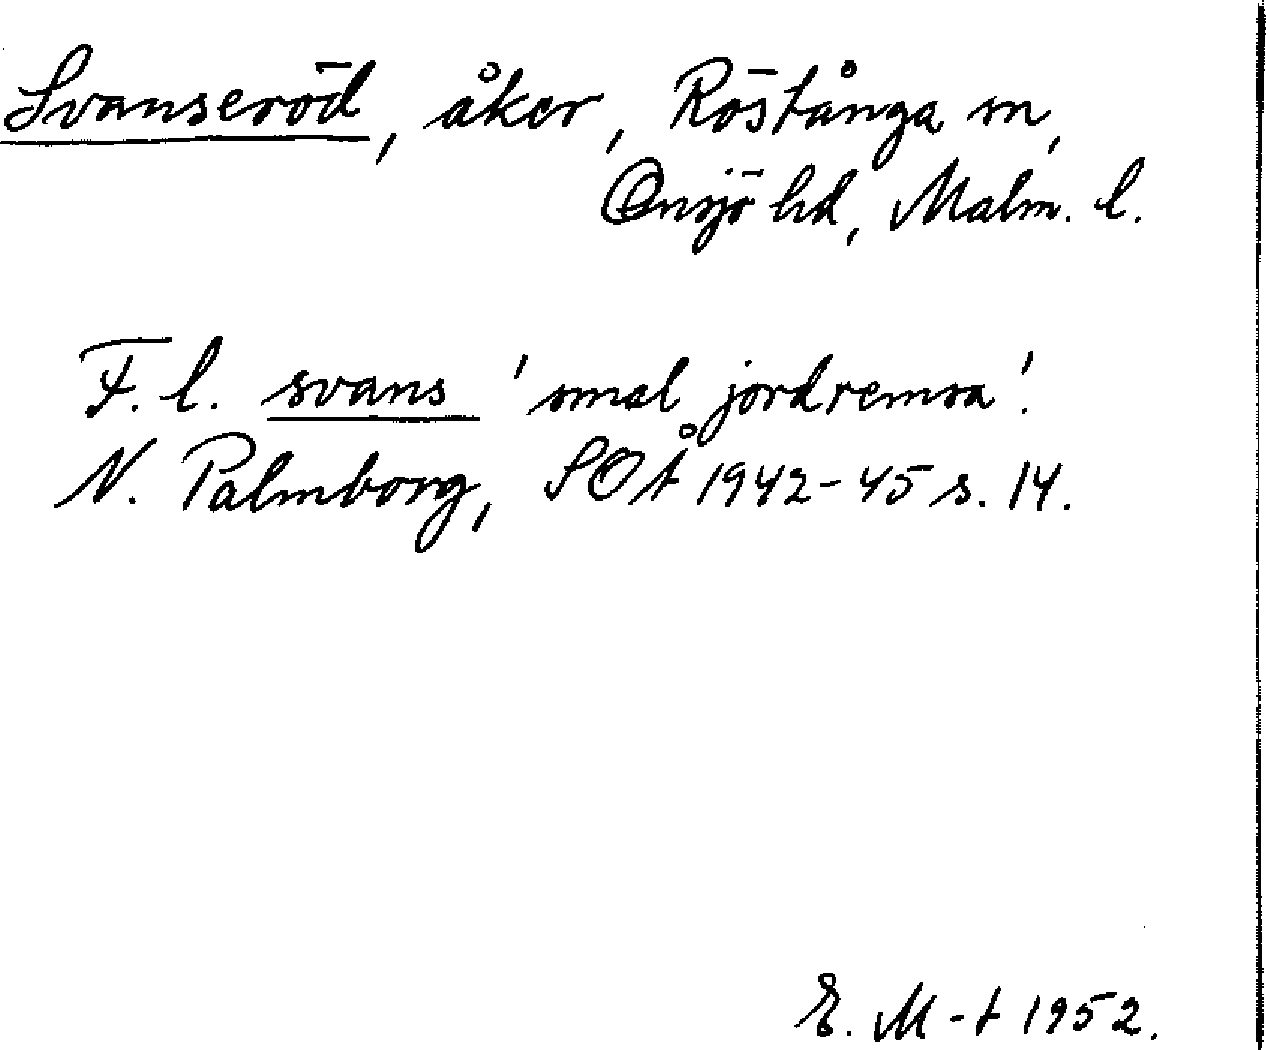 Svanseröd, åker, Röstånga sn,
Onsjö hd, Malm. l.
F. l. svans 'smal jordremsa'.
N. Palmborg, SOÅ 1942-45 s. 14.
E. M-t 1952.